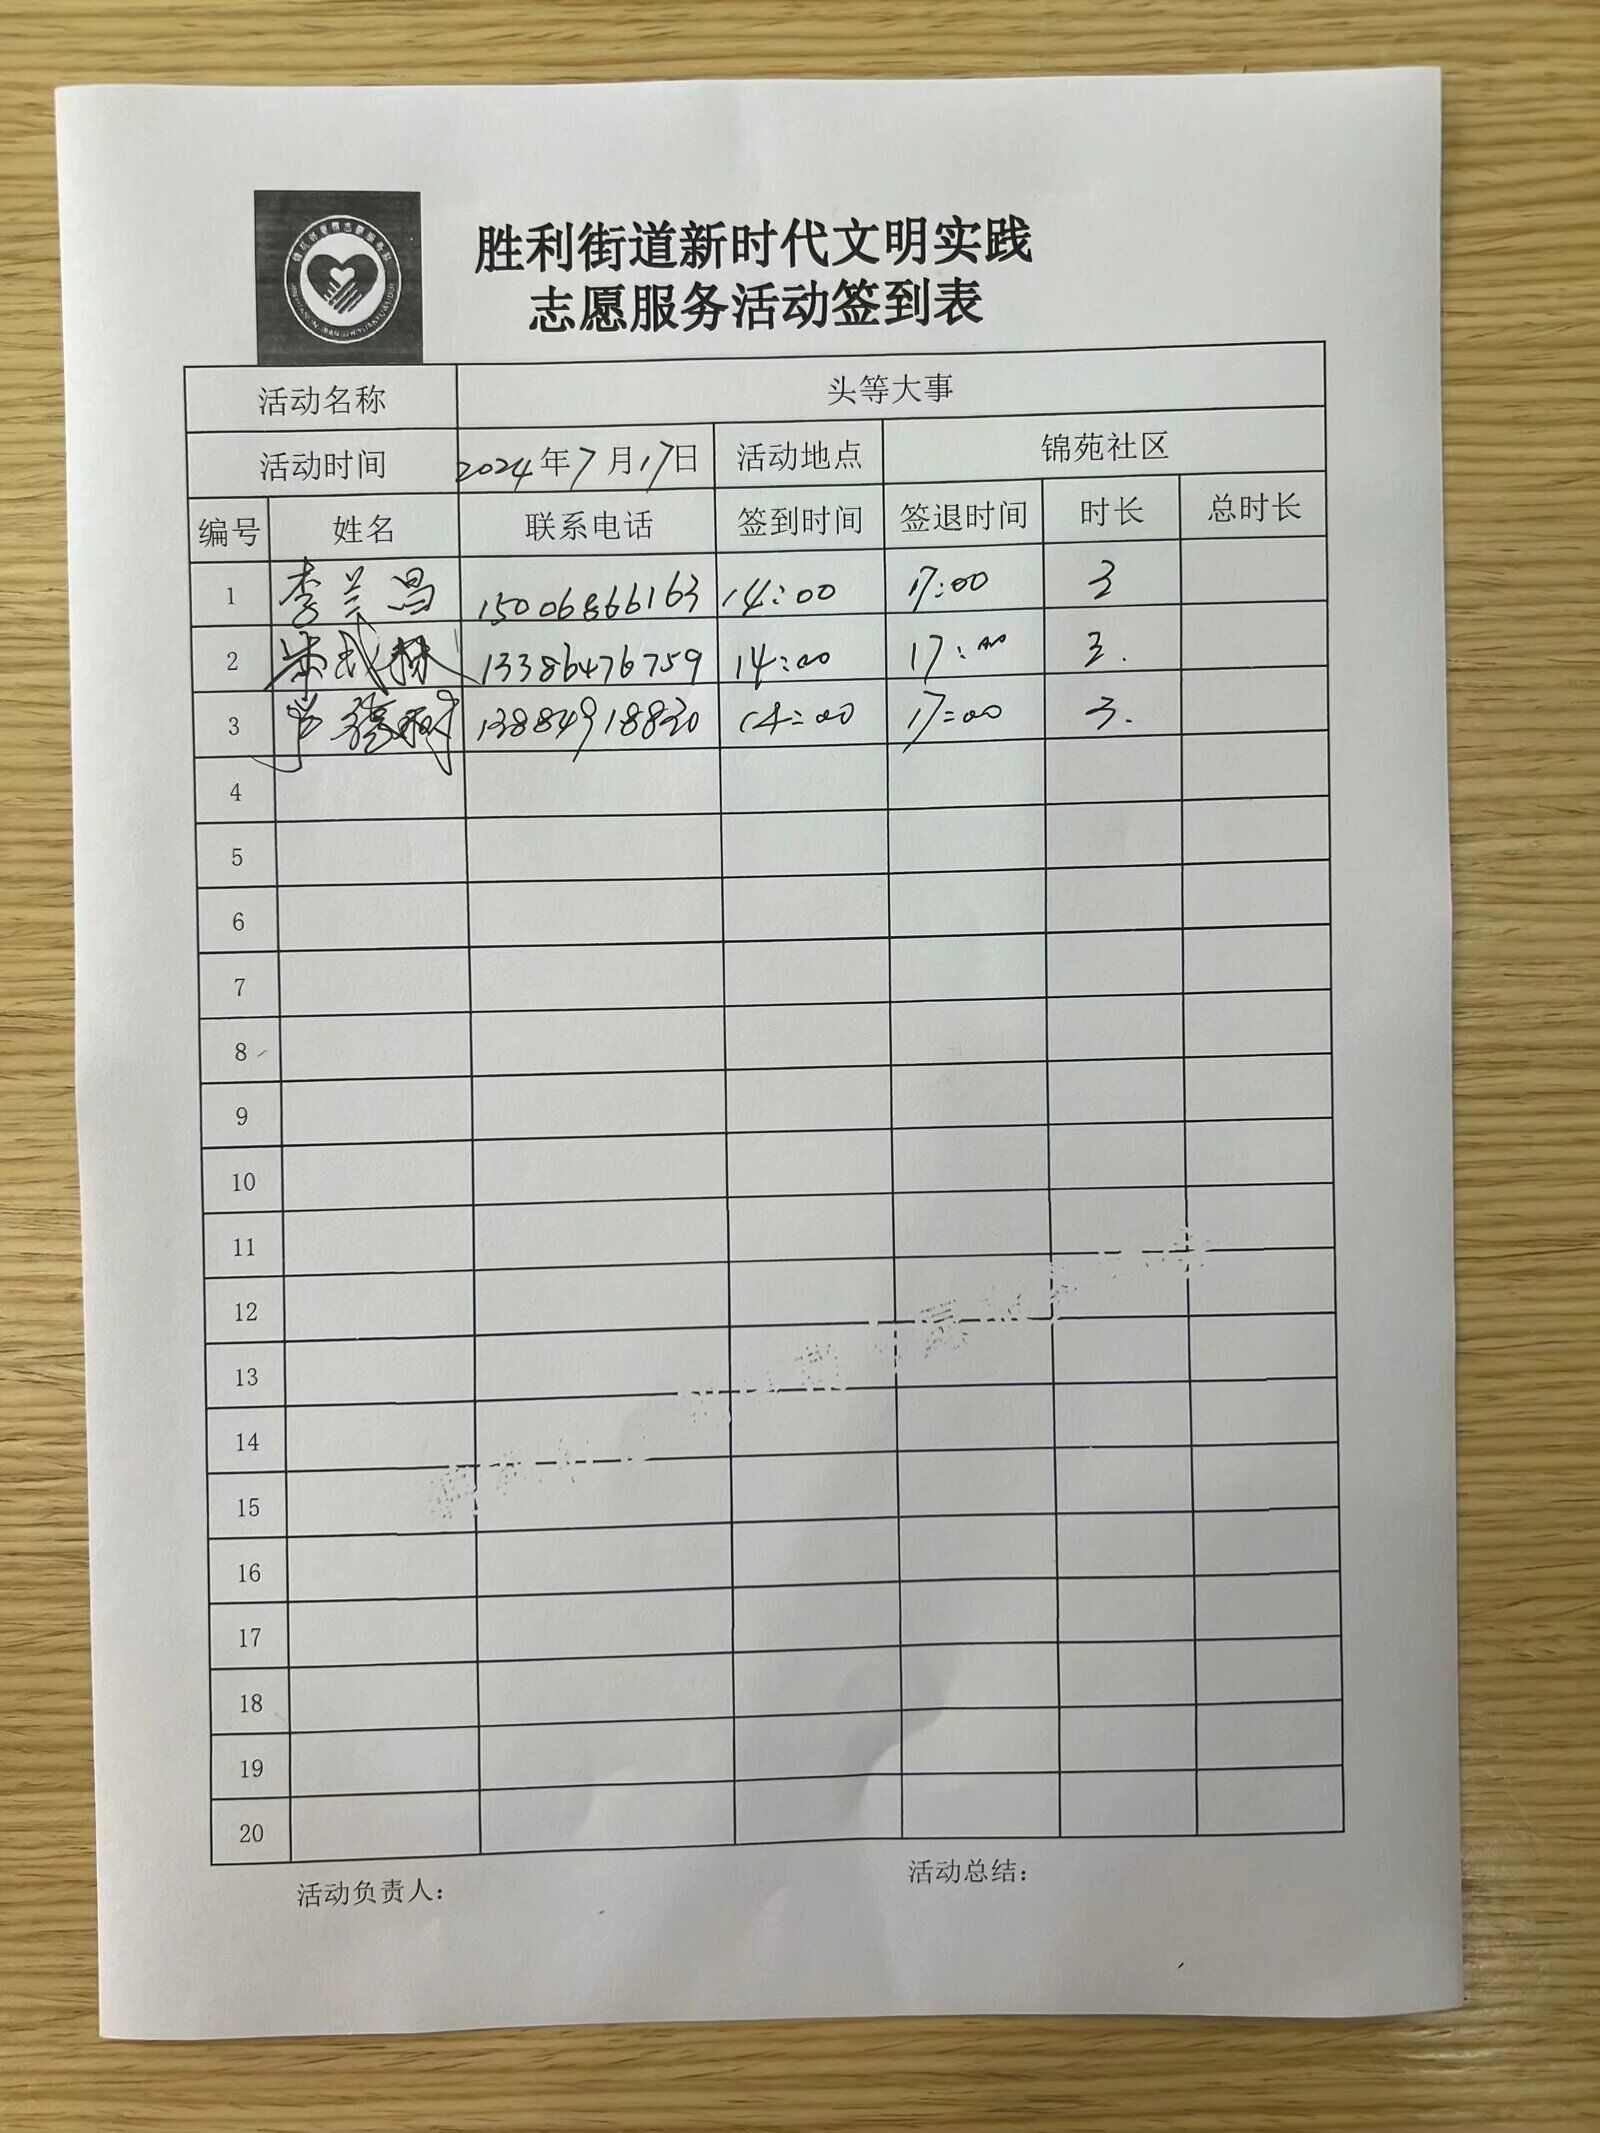 胜利街道新时代文明实践
志愿服务活动签到表
活动名称 头等大事
活动时间 2024年7月17日 活动地点 锦苑社区
编号 姓名 联系电话 签到时间 签退时间 时长 总时长
1 李兰昌 15006866163 14:00 17:00 3
2 13386476759 14:00 17:00 3.
3 13884918830 14:00 17:00 3.
4
5
6
7
8
9
10
11
12
13
14
15
16
17
18
19
20
活动负责人： 活动总结：